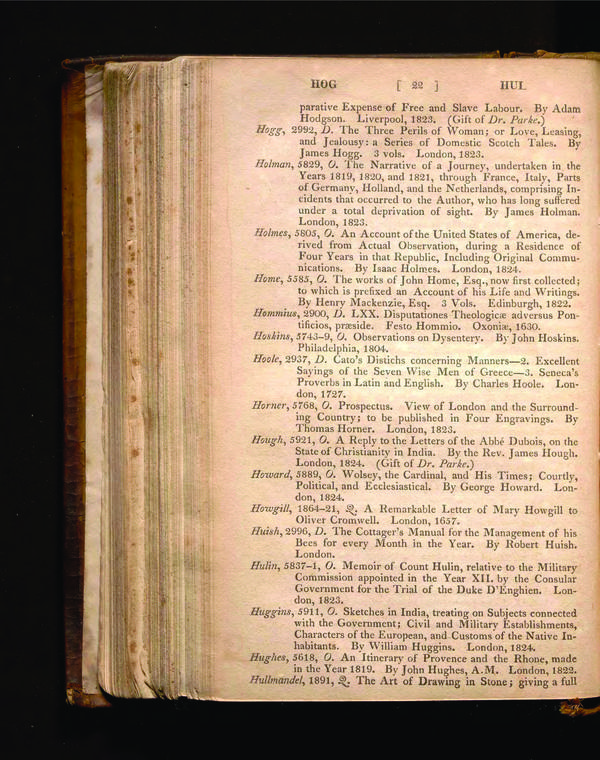 HOG [ 22 ] HUL
parative Expense of Free and Slave Labour. By Adam
Hodgson. Liverpool, 1823. (Gift of Dr. Parke.)
Hogg, 2992, D. The Three Perils of Woman; or Love, Leasing,
and Jealousy: a Series of Domestic Scotch Tales. By
James Hogg. 3 vols. London, 1823.
Holman, 5829, O. The Narrative of a Journey, undertaken in the
Years 1819, 1820, and 1821, through France, Italy, Parts
of Germany, Holland, and the Netherlands, comprising In-
cidents that occurred to the Author, who has long suffered
under a total deprivation of sight. By James Holman.
London, 1823.
Holmes, 5805, O. An Account of the United States of America, de-
rived from Actual Observation, during a Residence of
Four Years in that Republic, Including Original Commu-
nications. By Isaac Holmes. London, 1824.
Home, 5585, O. The works of John Home, Esq., now first collected;
to which is prefixed an Account of his Life and Writings.
By Henry Mackenzie, Esq. 3 Vols. Edinburgh, 1822.
Hommius, 2900, D. LXX. Disputationes Theologicæ adversus Pon-
tificios, præside. Festo Hommio. Oxoniæ, 1630.
Hoskins, 5743-9, O. Observations on Dysentery. By John Hoskins.
Philadelphia, 1804.
Hoole, 2937, D. Cato's Distichs concerning Manners—2. Excellent
Sayings of the Seven Wise Men of Greece—3. Seneca's
Proverbs in Latin and English. By Charles Hoole. Lon-
don, 1727.
Horner, 5768, O. Prospectus. View of London and the Surround-
ing Country; to be published in Four Engravings. By
Thomas Horner. London, 1823.
Hough, 5921, O. A Reply to the Letters of the Abbé Dubois, on the
State of Christianity in India. By the Rev. James Hough.
London, 1824. (Gift of Dr. Parke.)
Howard, 5889, O. Wolsey, the Cardinal, and His Times; Courtly,
Political, and Ecclesiastical. By George Howard. Lon-
don, 1824.
Howgill, 1864-21, Q. A Remarkable Letter of Mary Howgill to
Oliver Cromwell. London, 1657.
Huish, 2996, D. The Cottager's Manual for the Management of his
Bees for every Month in the Year. By Robert Huish.
London.
Hulin, 5837-1, O. Memoir of Count Hulin, relative to the Military
Commission appointed in the Year XII. by the Consular
Government for the Trial of the Duke D'Enghien. Lon-
don, 1823.
Huggins, 5911, O. Sketches in India, treating on Subjects connected
with the Government; Civil and Military Establishments,
Characters of the European, and Customs of the Native In-
habitants. By William Huggins. London, 1824.
Hughes, 5618, O. An Itinerary of Provence and the Rhone, made
in the Year 1819. By John Hughes, A.M. London, 1822.
Hullmandel, 1891, Q. The Art of Drawing in Stone; giving a full